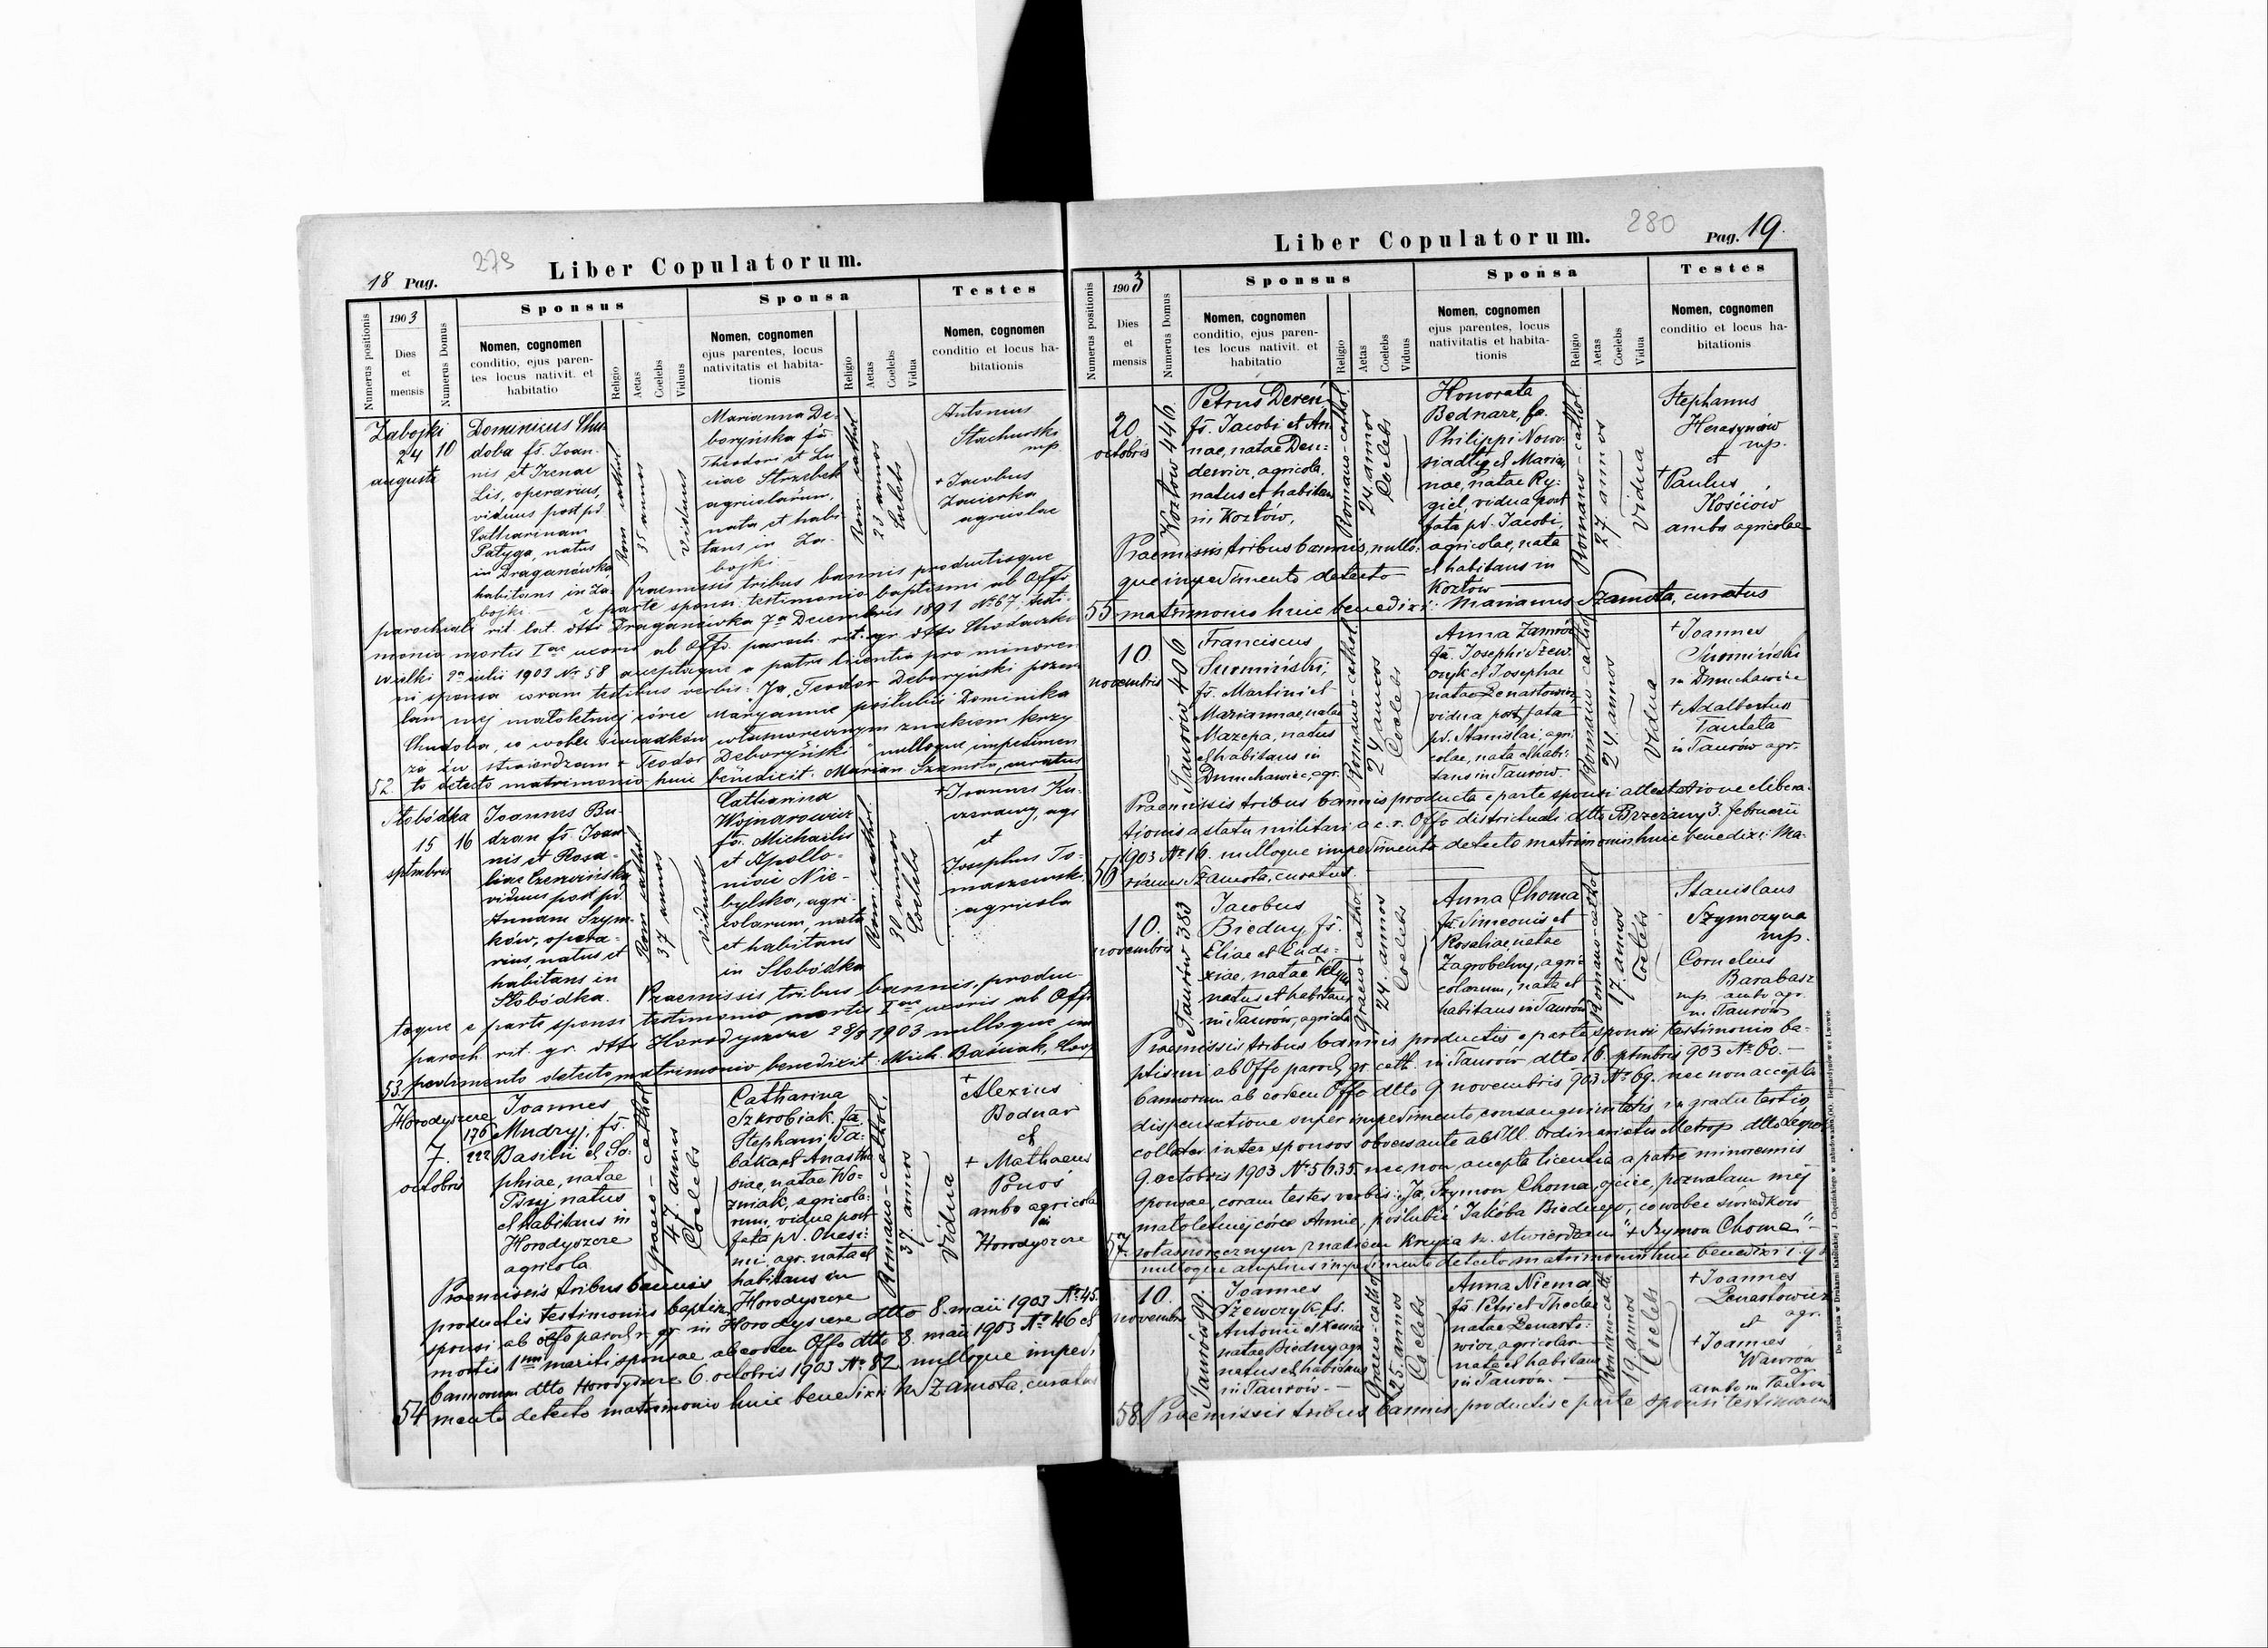 18 Pag.
279
Liber Copulatorum.
Numerus positionis
1903
Dies
et
mensis
Numerus Domus
Sponsus
Nomen, cognomen
conditio, ejus paren-
tes locus nativit. et
habitatio
Religio
Aetas
Coelebs
Viduus
Sponsa
Nomen, cognomen
ejus parentes, locus
nativitatis et habita-
tionis
Religio
Aetas
Coelebs
Vidua
Testes
Nomen, cognomen
conditio et locus ha-
bitationis
Zabojki
24
augusti
10
Dominicus Chu
doba fs. Joan-
nis et Irenae
Lis, operarius,
viduus post pd
Catharinam
Patyga, natus
in Draganówka
habitans in Za-
bojki.
Rom cathol
35 annos
viduus
Marianna De-
boryńska fa
Theodori et Lu
ciae Strzebek
agricolarum,
nata et habi
tans in Za-
bojki
Rom. cathol
23 annos
Coelebs
Antonius
Stachurski
mp
+ Jacobus
Zacierka
agricolae
Praemissis tribus bannis productisque
e parte sponsi testimonio baptismi ab Offo
parochiali rit. lat. dtto Draganówka 7a Decembris 1891 No 67, testi-
monio mortis Iae uxoris ab Offo. paroch. rit. gr. dtto Chodaczko
wielki 2a iulii 1903 No 58 acceptaque a patre licentia pro minoren
ni sponsa coram testibus verbis: Ja, Teodor Deboryński pozwa
lam mej małoletniej córce Maryannie poślubić Dominika
Chudoba, co wobec świadków własnoręcznym znakiem krzy
ża św stwierdzam + Teodor Deboryński" nulloque impedimen
52. to detecto matrimonio huic benedixit: Marian Szamota, curatus
Słobódka
15
sptmbris
16
Joannes Bu-
dzan fs. Joan-
nis et Rosa-
liae Czerwińska
viduus post pd.
Annam Szym-
ków, opera-
rius, natus et
habitans in
Słobódka.
Rom cathol
37 annos
viduus
Catharina
Wojnarowicz
fa. Michaelis
et Apollo-
niae Nie-
bylska, agri-
colarum, nata
et habitans
in Slobódka
Rom. cathol.
30 annos
Coelebs
+ Joannes Ku-
agr
et
Josephus To-
maszewski,
agricola
Praemissis tribus bannis, produc-
toque e parte sponsi testimonio mortis Iae uxoris ab Offo
paroch. rit. gr. dtto Horodyszcze 28/8 1903 nulloque im
53. pedimento detecto matrimonio benedixit: Mich. Baśniak, Coop
Horodyszcze
7.
octobris
176
222
Joannes
Mudryj, fs.
Basilii et So-
phiae, natae
Tisyj natus
et habitans in
Horodyszcze
agricola.
Graeco-cathol
47. annos
Coelebs
Catharina
Szkrobiak fa
Stephani Ta-
baka et Anastha
siae, natae Wo-
zniak, agricola-
rum, vidua post
fata pd. Onesi-
mi, agr. nata et
habitans in
Horodyszcze
Romano-cathol.
37. annos
Vidua
+
Alexius
Bodnar
et
+ Mathaeus
Ponoś
ambo agricolae
in
Horodyszcze
Praemissis tribus bannis
productis testimoniis baptism
sponsi ab offo paroch. r. gr. in Horodyszcze dtto 8. maii 1903 No 45.
mortis 1mi mariti sponsae ab eodem Offo dtto 8. maii 1903 No 46 et
bannorum dtto Horodyszcze 6. octobris 1903 No 82 nulloque impedi
54 mento detecto matrimonio huic benedixi M Szamota, curatus
280
Liber Copulatorum.
Pag. 19.
Numerus positionis
1903
Dies
et
mensis
Numerus Domus
Sponsus
Nomen, cognomen
conditio, ejus paren-
tes locus nativit. et
habitatio
Religio
Aetas
Coelebs
Viduus
Sponsa
Nomen, cognomen
ejus parentes, locus
nativitatis et habita-
tionis
Religio
Aetas
Coelebs
Vidua
Testes
Nomen, cognomen
conditio et locus ha-
bitationis
20
octobris
Kozłow 446.
Petrus Dereń
fs. Jacobi et An
nae, natae Den-
dewicz, agricola.
natus et habitans
in Kozłów,
Romano-cathol.
24. annos
Coelebs
Honorata
Bednarz, fa.
Philippi Nowo
siadly et Marian
nae, natae Ry-
giel, vidua post
fata pd. Jacobi,
agricolae, nata
et habitans in
Kozłów
Romano-cathol.
27. annos
Vidua
Stephanus
Herasymów
mp.
et
+ Paulus
Kościów
ambo agricolae
Praemissis tribus bannis, nullo-
que impedimento detecto
55. matrimonio huic benedixi: Marianus Szamota, curatus
10.
novembris
Taurów 406
Franciscus
Surmiński,
fs. Martini et
Mariannae, natae
Mazepa, natus
et habitans in
Dmuchawiec, agr.
Romano-cathol.
24 annos
Coelebs
Anna Zamróz
fa. Josephi Szew
czyk et Josephae
natae Lenartowicz,
vidua post fata
pd. Stanislai, agri
colae, nata et habi-
tans in Taurow
Romano cathol
24. annos
Vidua
+ Joannes
Surmiński
in Dmuchawiec
+ Adalbertus
Tautata
in Taurów agr.
Praemissis tribus bannis producta e parte sponsi attestatione libera-
tionis a statu militari a c. r. Offo districtuali dtto Brzeżany 3. februarii
1903 No 16. nulloque impedimento detecto matrimonio huic benedixi: Ma-
56 rianus Szamota, curatus
10.
novembris
Taurów 383
Jacobus
Biedny, fs.
Eliae et Eudo-
xiae, natae
natus et habitans
in Taurów, agricola
Graeco-cathol
24. annos
Coelebs
Anna Choma
fa. Simeonis et
Rosaliae, natae
Zagrobelny, agri
colarum, nata et
habitans in Taurów
Romano-cathol
17. annos
Coelebs
Stanislaus
Szymczyna
mp.
Cornelius
Barabasz
mp. ambo agr.
in Taurów
Praemissis tribus bannis productis e parte sponsi testimonio ba-
ptismi ab Offo paroch gr. cath. in Taurów dtto 16. ptmbris 903 No 60.
bannorum ab eodem Offo dtto 9 novembris 903 No 69. nec non accepta
dispensatione super impedimento consanguinitatis in gradu tertio
collater. inter sponsos obversante ab Ill. Ordinariatu Metrop dtto Leopoli
9. octobris 1903 No 5635. nec non accepta licentia a patre minorennis
sponsae, coram testes verbis: "Ja, Szymon Choma, ojciec, pozwalam mej
małoletniej córce Annie, poślubić Jakóba Biednego, co wobec świadków
57. własnoręcznym znakiem krzyża św. stwierdzam" + Szymon Choma"
nulloque amplius impedimento detecto matrimonio huic benedixi
10.
novembr
Taurów 99.
Joannes
Szewczyk fs.
Antonii et Xeniae
natae Biedny agr
natus et habitans
in Taurów.
Graeco-cathol
25. annos
Coelebs
Anna Niema
fa Petri et Theclae
natae Lenarto-
wicz, agricolar
nata et habitans
in Taurow.
Romano-cath.
19. annos
Coelebs
+ Joannes
Lenartowicz
agr.
et
+ Joannes
Wawrów
agr
ambo in Taurow
58. Praemissis tribus bannis, productis e parte sponsi testimonio
Do nabycia w Drukarni Katolickiej J. Chęcińskiego w zabudowaniu OO. Bernardynów we Lwowie.